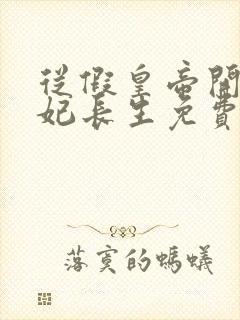 從假皇帝開
妃長生免費
落寞的螞蟻